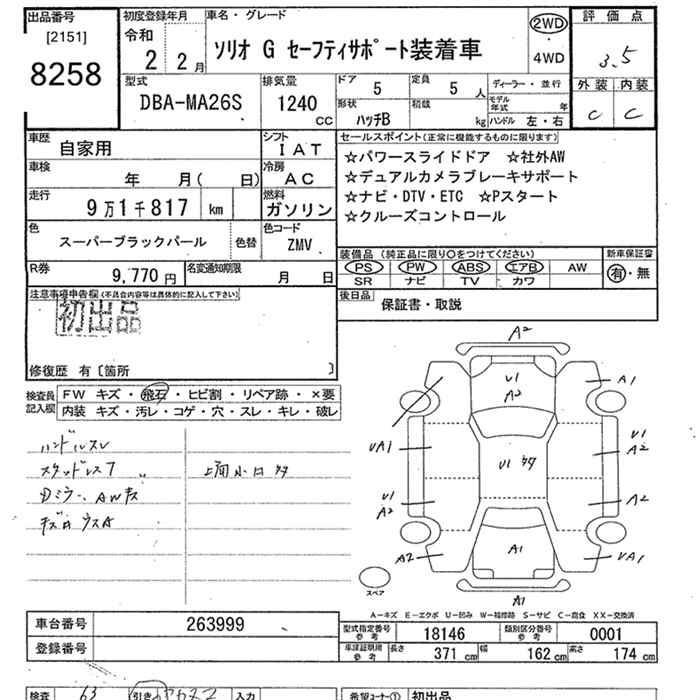 出品番号
[2151]
8258
初度登録年月
令和
2 2月
車名・グレード
ソリオ G セーフティサポート装着車
2WD
・
4WD
評価点
3.5
外装 内装
C C
型式
DBA-MA26S
排気量
1240
CC
ドア
5
定員
5 人
形状
ハッチB
積載
kg
ディーラー・並行
モデル年式 年
ハンドル 左・右
車歴
自家用
シフト
IAT
車検
年 月( 日)
冷房
AC
走行
9万1千817 km
燃料
ガソリン
色
スーパーブラックパール
色替
色コード
ZMV
R券
9,770 円
名変通知期限
月 日
セールスポイント(正常に機能するものに限ります)
☆パワースライドドア ☆社外AW
☆デュアルカメラブレーキサポート
☆ナビ・DTV・ETC ☆Pスタート
☆クルーズコントロール
装備品(純正品に限り○をつけてください)
PS PW ABS エアB AW
SR ナビ TV カワ
新車保証書
有・無
後日品
保証書・取説
注意事項申告欄(不具合内容等は具体的に記入して下さい)
初出品
修復歴 有〔箇所 〕
検査員記入欄
FW キズ・飛石・ヒビ割・リペア跡・×要
内装 キズ・汚レ・コゲ・穴・スレ・キレ・破レ
ハンドルスレ
スタッドレス7
上面小キズ多
Dミラー、AWキズ
A2
U1
A2
A1
UA1
U1
A2
U1 多
U1
A2
A2
A2
A1
UA1
A1
スペア
A-キズ E-エクボ U-凹み W-補修跡 S-サビ C-腐食 XX-交換済
車台番号
263999
登録番号
型式指定番号
参考
18146
類別区分番号
参考
0001
車庫証明用
参考
長さ
371 cm
幅
162 cm
高さ
174 cm
検査
63
引き
入力
希望コーナー①
初出品